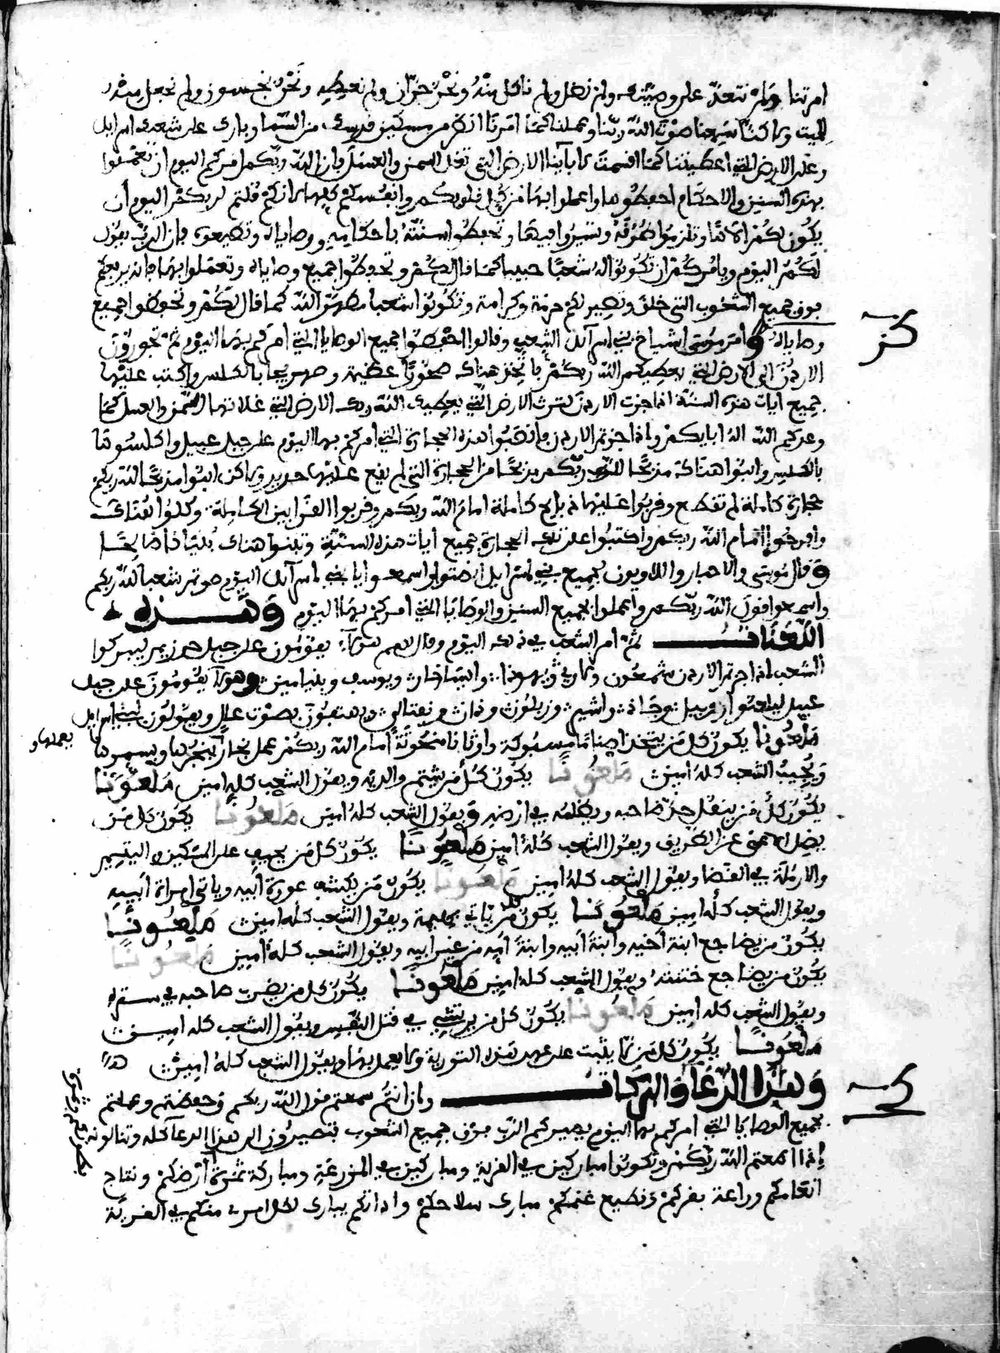 امرتنا ولم نتعدّ على وصيتك ولم نغفل ولم ناكل منه ونحن حزان ولم نعطه ونحن نجسون ولم نجعل منه
للميت وكنا سمعنا صوت الله ربنا وعملنا كما امرتنا انظر من مسكن قدسك من السما وبارك على شعبك اسرايل
وعلى الارض التي اعطيتنا كما اقسمت لابآينا الارض التي تغل السمن والعسل وان الله ربكم امركم اليوم ان تعملوا
بهذه السنن والاحكام احفظوها واعملوا بها من كل قلوبكم وانفسكم كلها لانكم قلتم لربكم اليوم ان
يكون لكم الاها وتلزموا طرقه وتسيروا فيها وتحفظوا سنته واحكامه ووصاياه وتطيعوه فان الرب يقول
لكم اليوم ويامركم ان تكونوا له شعبا حبيبا كما قال لكم وتحفظوا جميع وصاياه وتعملوا بها فانه يرفعكم
فوق جميع الشعوب التي خلق وتصير لكم حرمة وكرامة وتكونوا شعبا مطهرا لله كما قال لكم وتحفظوا جميع
وصاياه وامر موسى اشياخ بني اسرآيل الشعب وقالوا احفظوا جميع الوصايا التي امركم بها اليوم ثم تجوزون
الاردن الى الارض التي يعطيكم الله ربكم فانحز هناك صخورا عظيمة وصهرجها بالكلس واكتب عليها
جميع آيات هذه السنة اذا جزت الاردن لترث الارض التي يعطيك الله ربك الارض التي غلاتها السمن والعسل كما
وعدكم الله اله ابايكم واذا جزتم الاردن فانصبوا هذه الحجارة التي امركم بها اليوم على جبل عيبل واكلسوها
بالكلس وابنوا هناك مذبحا لله ربكم مذبحا من الحجارة التي لم يقع عليها حديد ولكن ابنوا مذبحا لله ربكم
حجارة كاملة لم تقطع وقربوا عليها ذبايح كاملة امام الله ربكم وقربوا القرابين الكاملة وكلوا هناك
وافرحوا امام الله ربكم واكتبوا على تلك الحجارة جميع آيات هذه السنة وتبنوا هناك بنيانا واضحا
وقال موسى والاحبار واللاويون لجميع بني اسرايل انصتوا واسمعوا يا بني اسرآيل اليوم صرتم شعبا لله ربكم
واسمعوا قول الله ربكم واعملوا بجميع السنن والوصايا التي امركم بها اليوم وهذه
اللعنات ثم امر الشعب في ذلك اليوم وقال لهم هولاء يقومون على جبل هرزيم ليبركوا
الشعب اذا جزتم الاردن شمعون ولاوي ويهوذا واليساخار ويوسف وبنيامين وهولا يقومون على جبل
عيبل ليلعنوا روبيل وجاد واشير وزبلون ودان ونفتالي ويهتفون بصوت عال ويقولون لبني اسرايل
ملعونا يكون كل من يتخذ اصناما مسبوكة واوثانا منحوتة امام الله ربكم عمل نجار ينجرها ويسيرها
يعملها و
ويجيب الشعب كله امين ملعونا يكون كل من يشتم والديه ويقول الشعب كله امين ملعونا
يكون كل من ينقل حد صاحبه ويظلمه في ارضه ويقول الشعب كله امين ملعونا يكون كل من
يضل الاعمى عن الطريق ويقول الشعب كله امين ملعونا يكون كل من يحيف على المسكين واليتيم
والارملة في القضا ويقول الشعب كله امين ملعونا يكون من يكشف عورة ابيه وياتي امراة ابيه
ويقول الشعب كله امين ملعونا يكون من ياتي بهيمة ويقول الشعب كله امين ملعونا
يكون من يضاجع ابنة اخيه وابنة ابيه وابنة امه من غير ابيه ويقول الشعب كله امين ملعونا
يكون من يضاجع ختنته ويقول الشعب كله امين ملعونا يكون كل من يضرب صاحبه في ستره
ويقول الشعب كله امين ملعونا يكون كل من يرتشي في قتل النفس ويقول الشعب كله امين
ملعونا يكون كل من لا يثبت على عهد هذه التورية ولا يعمل بها ويقول الشعب كله امين
وهذا الدعا والبركات وان انتم سمعتم قول الله ربكم وحفظتم وعملتم
بجميع الوصايا التي امركم بها اليوم يصيركم الرب فوق جميع الشعوب فتصيرون الى هذا الدعآ كله وتنالونه
اذا اطعتم الله ربكم وتكونوا مباركين في القرية ومباركين في المزرعة ومباركة ثمرة ارضكم ونتاج
انعامكم وراعة بقركم وقطيع غنمكم مبارك سلاحكم واداتكم يبارك لكل امرء منكم في القرية